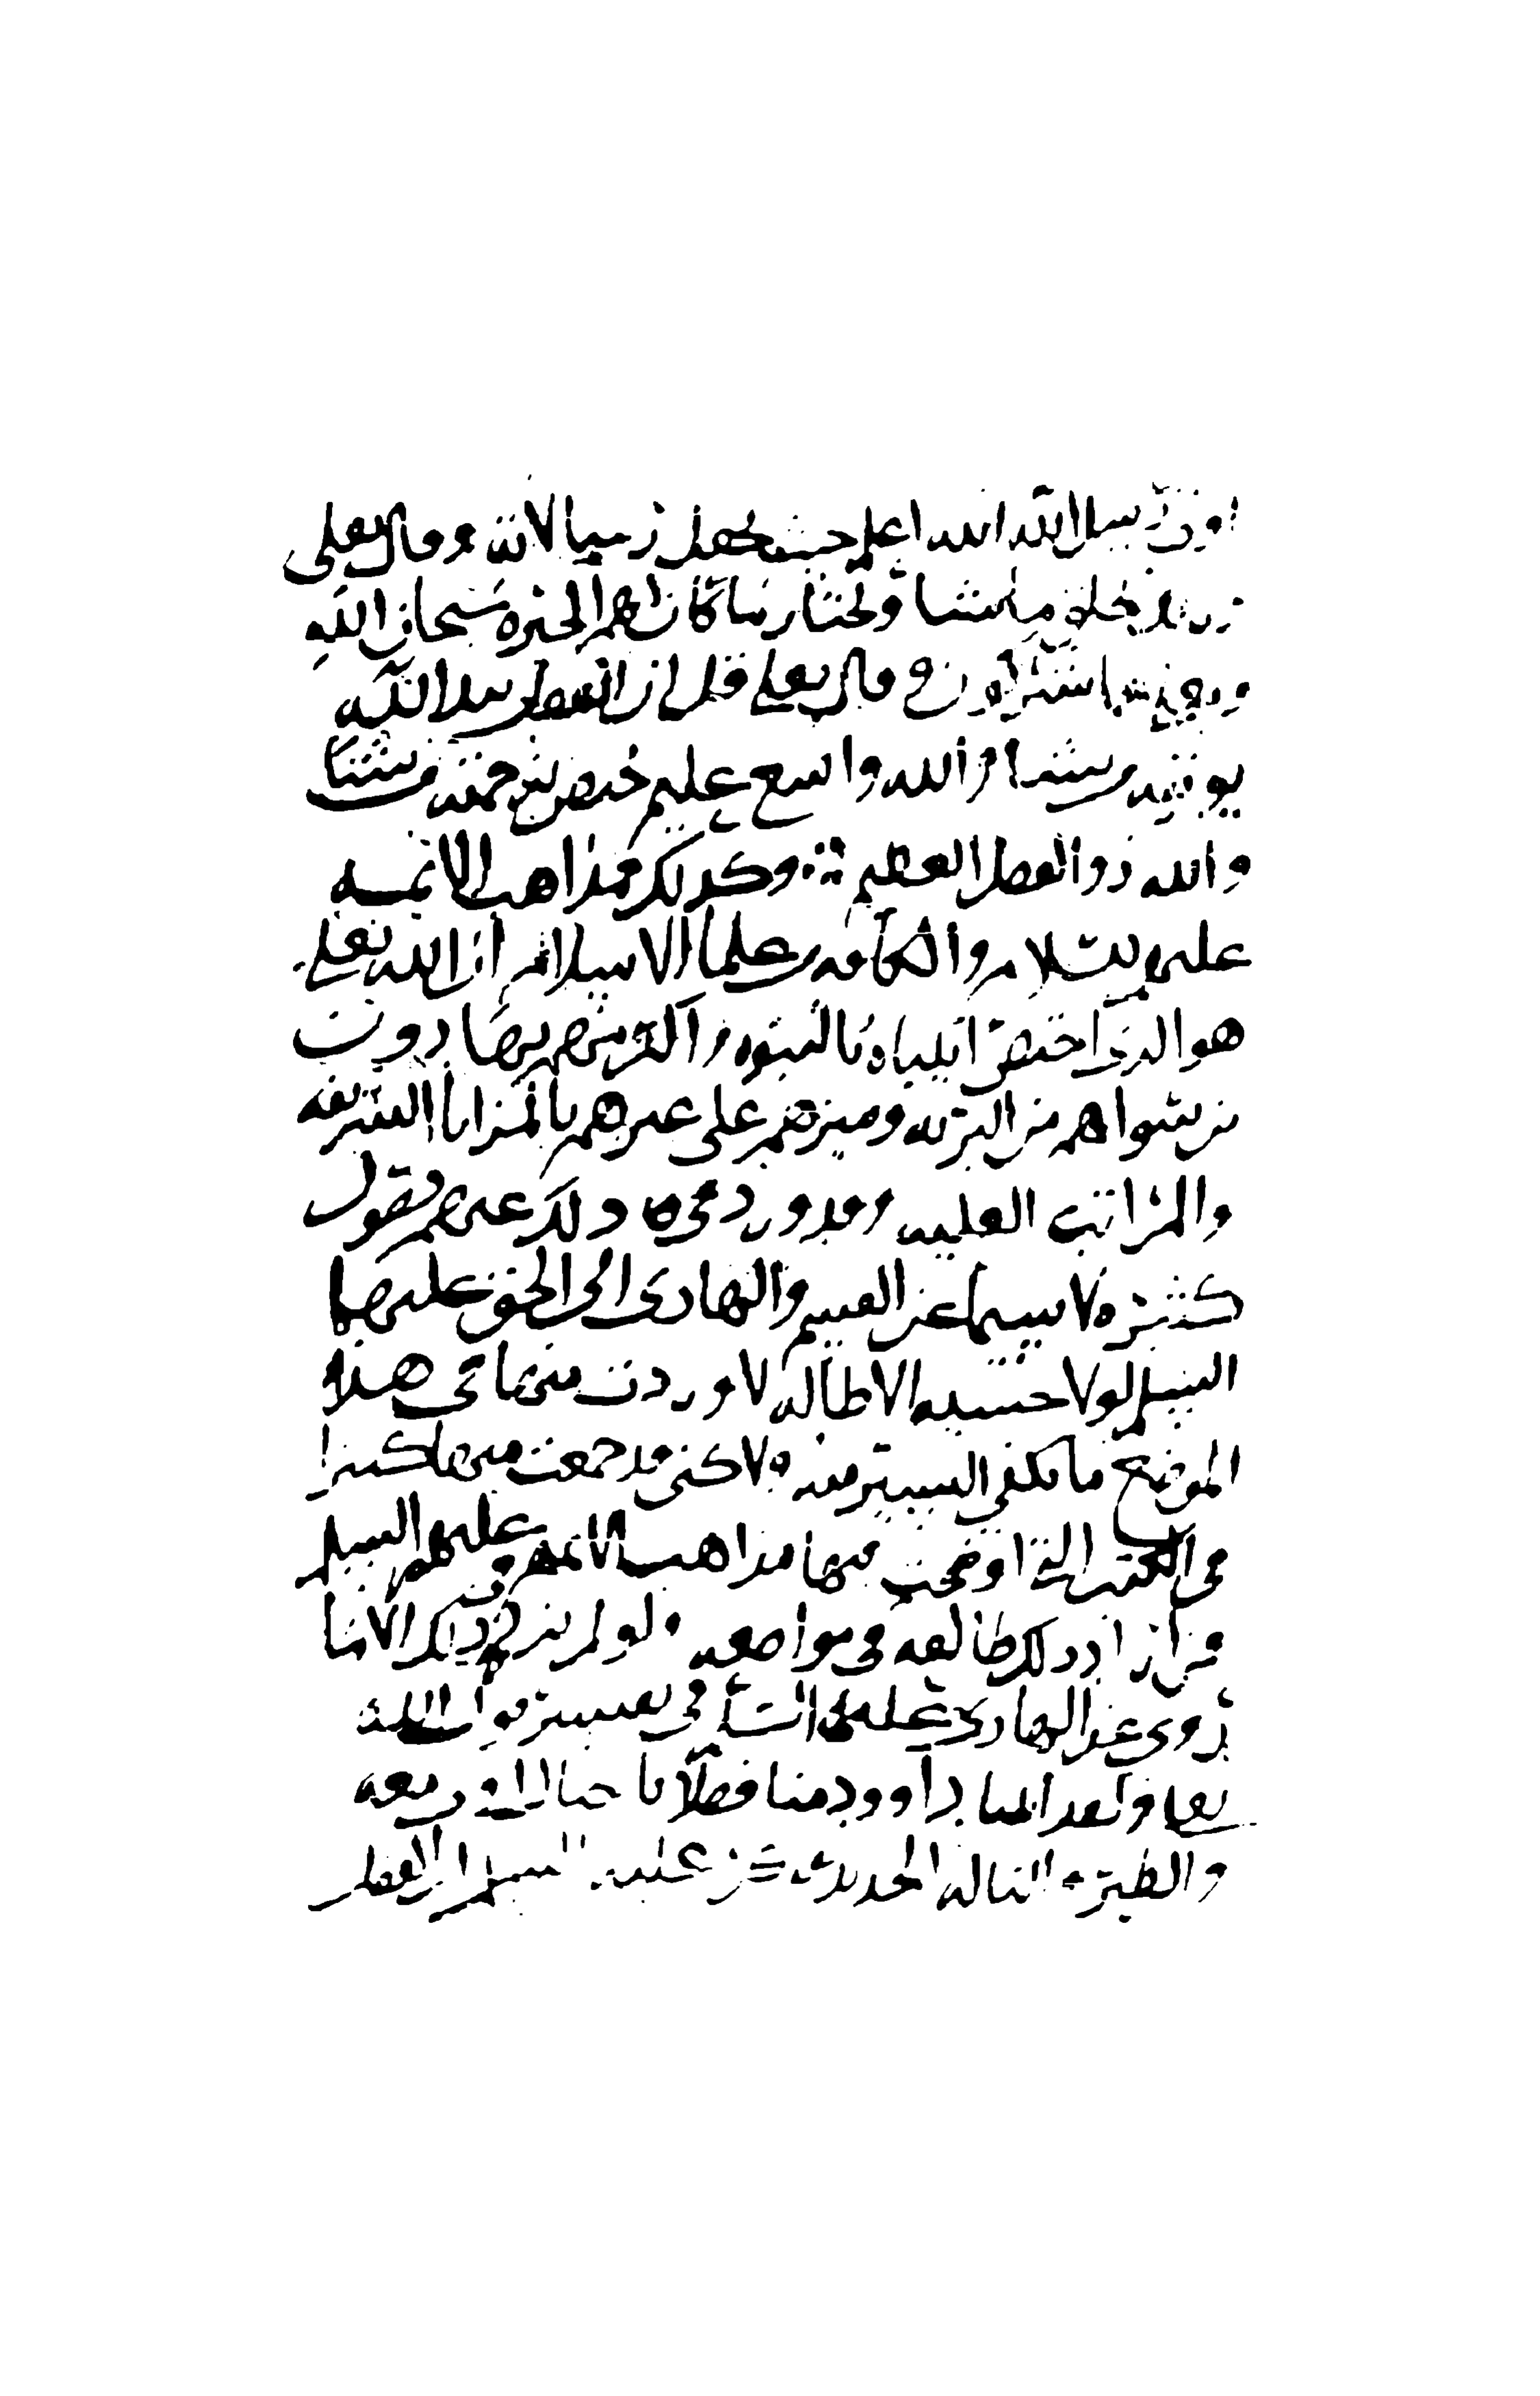 اوتي رسل الله الله اعلم حيث يجعل رسالاته وقال تعلى
وربك يخلق ما يشا ويختار ما كان لهم الخيرة سبحان الله
وتعلى عما يشركون وقال تعلى قل ان الفضل بيد الله
يوتيه من يشا والله واسع عليم يختص برحمته من يشا
والله ذوالفضل العظيم وكذلك مذاهب الايمه
عليهم السلام والكافه من علما الاسلام ان الله تعلى
هو الذي اختص انبياه بالنبوه واكرمهم بها دون
من سواهم من البريه وميزهم على غيرهم بالمزايا الشريفه
والمراتب العليه وقد ورد نحو ذلك عنهم نقول
كثيره لا سيما عن القسم والهادي الى الحق عليهما
السلم لولا خشيه الاطاله لاوردت منها في هذا
الموضع ما يكفي اليسير منه لاكني قد جمعت منها كثيرا
في الكتب التي اوضحت فيها مذاهب الايمه عليهم السلم
فمن اراد ذلك طالعه في مواضعه ولو لم يرد في ذلك الا ما
روي عن الهادي عليه السلم في تفسير قول الله
تعلى ولقد اتينا داوود منا فضلا يا جبال اوبي معه
والطير والنا له الحديد